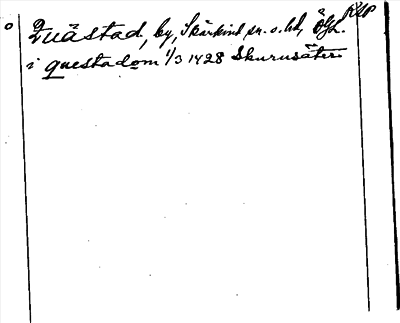 Quästad, by, Skärkind sn. o. hd, Ögl.
i questadom 1/3 1428 Skurusäter